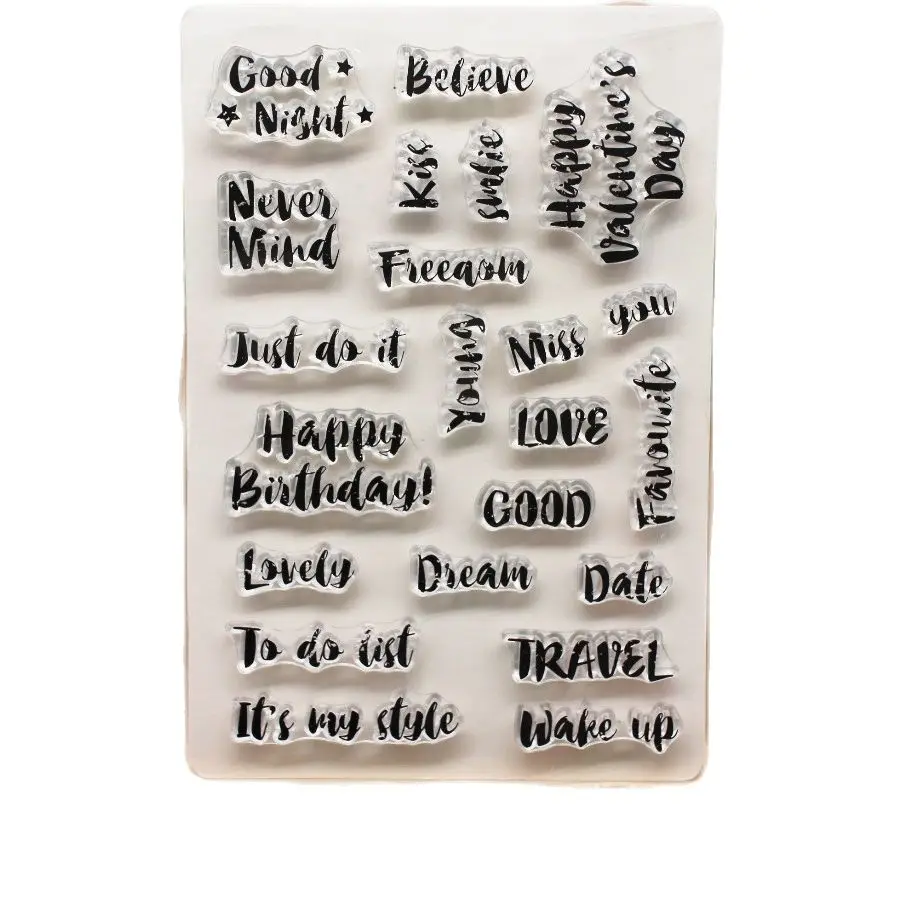 Good
Night
Believe
Kiss
smlie
Happy
Valentine's
Day
Never
Mind
Freeaom
you
Just do it
Young
Miss
Favourite
LOVE
Happy
Birthday!
GOOD
Lovely
Dream
Date
To do list
TRAVEL
It's my style
Wake up